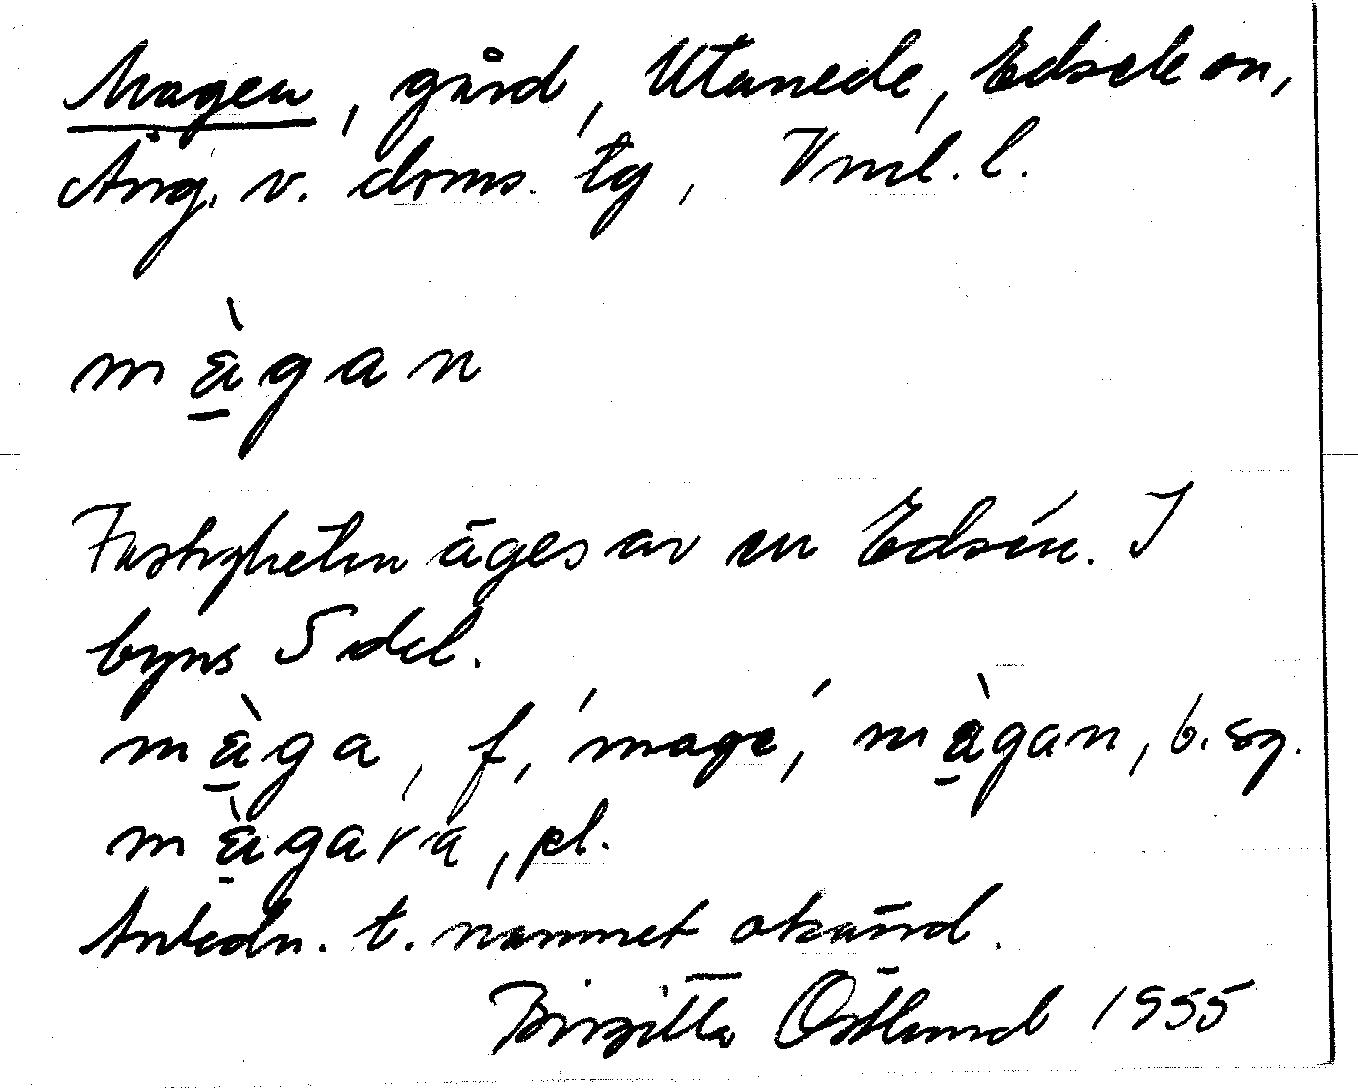 Magen, gård, Utanede, Edsele sn,
Ång. v. doms. tg, Vml. l.
màgan
Fastigheten äges av en Edsén. I
byns S del.
màga, f, 'mage', màgan, b. sg.
màgara, pl.
Anledn. t. namnet okänd.
Birgitta Östlund 1955